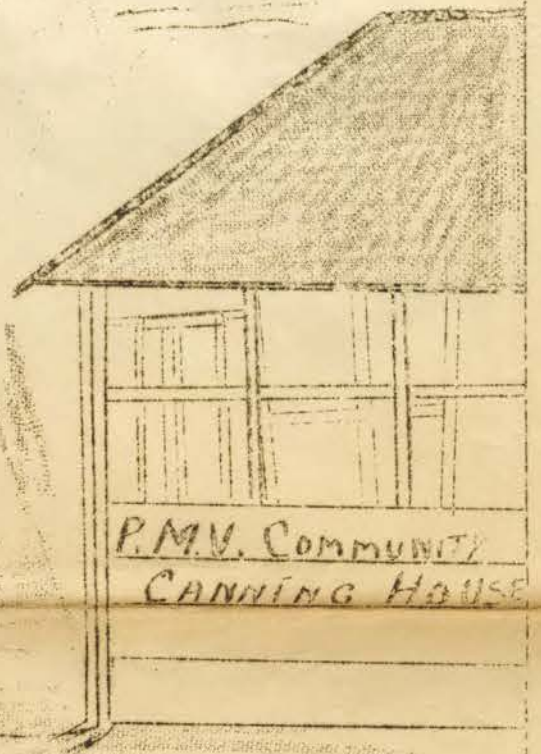 P.M.V. COMMUNITY
CANNING HOUSE